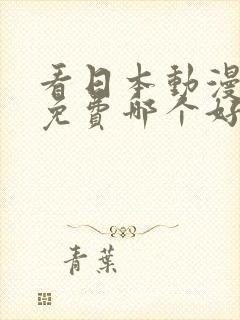 看日本動漫
免費哪个好
青葉